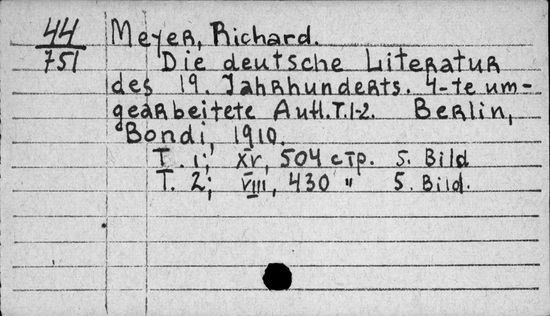 44
751
Meyer, Richard.
Die deutsche Literatur
des 19. Jahrhunderts. 4-te um-
gearbeitete Aufl. T. 1-2. Berlin,
Bondi, 1910.
T. 1; XV, 504 стр. 5. Bild
T. 2; VIII, 430 " 5. Bild.